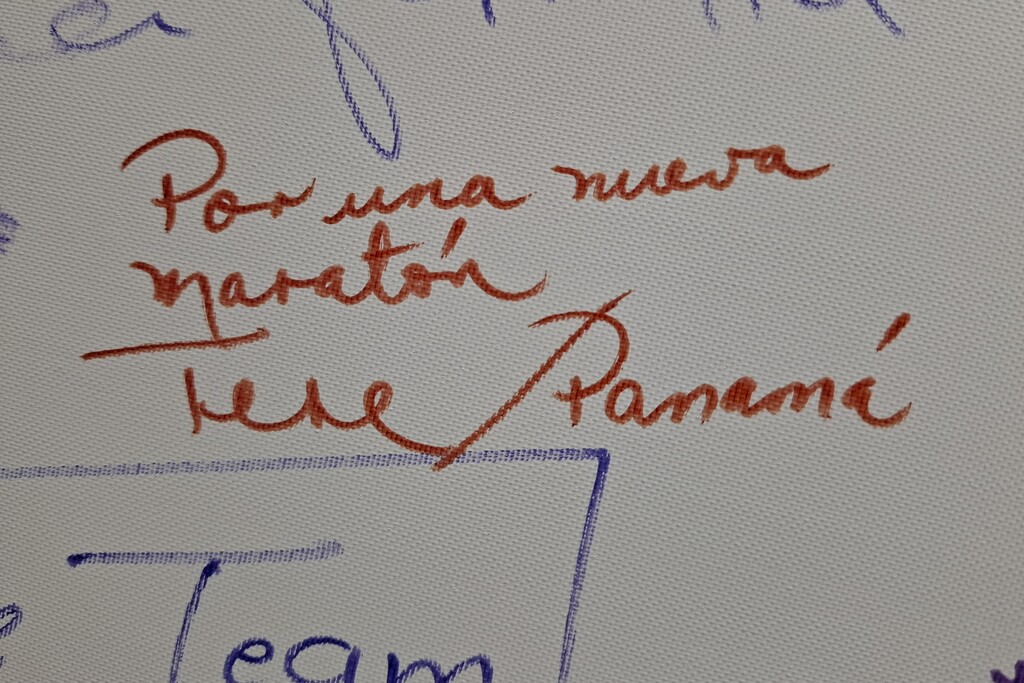 Por una nueva
maratón
Tere / Panamá
Team